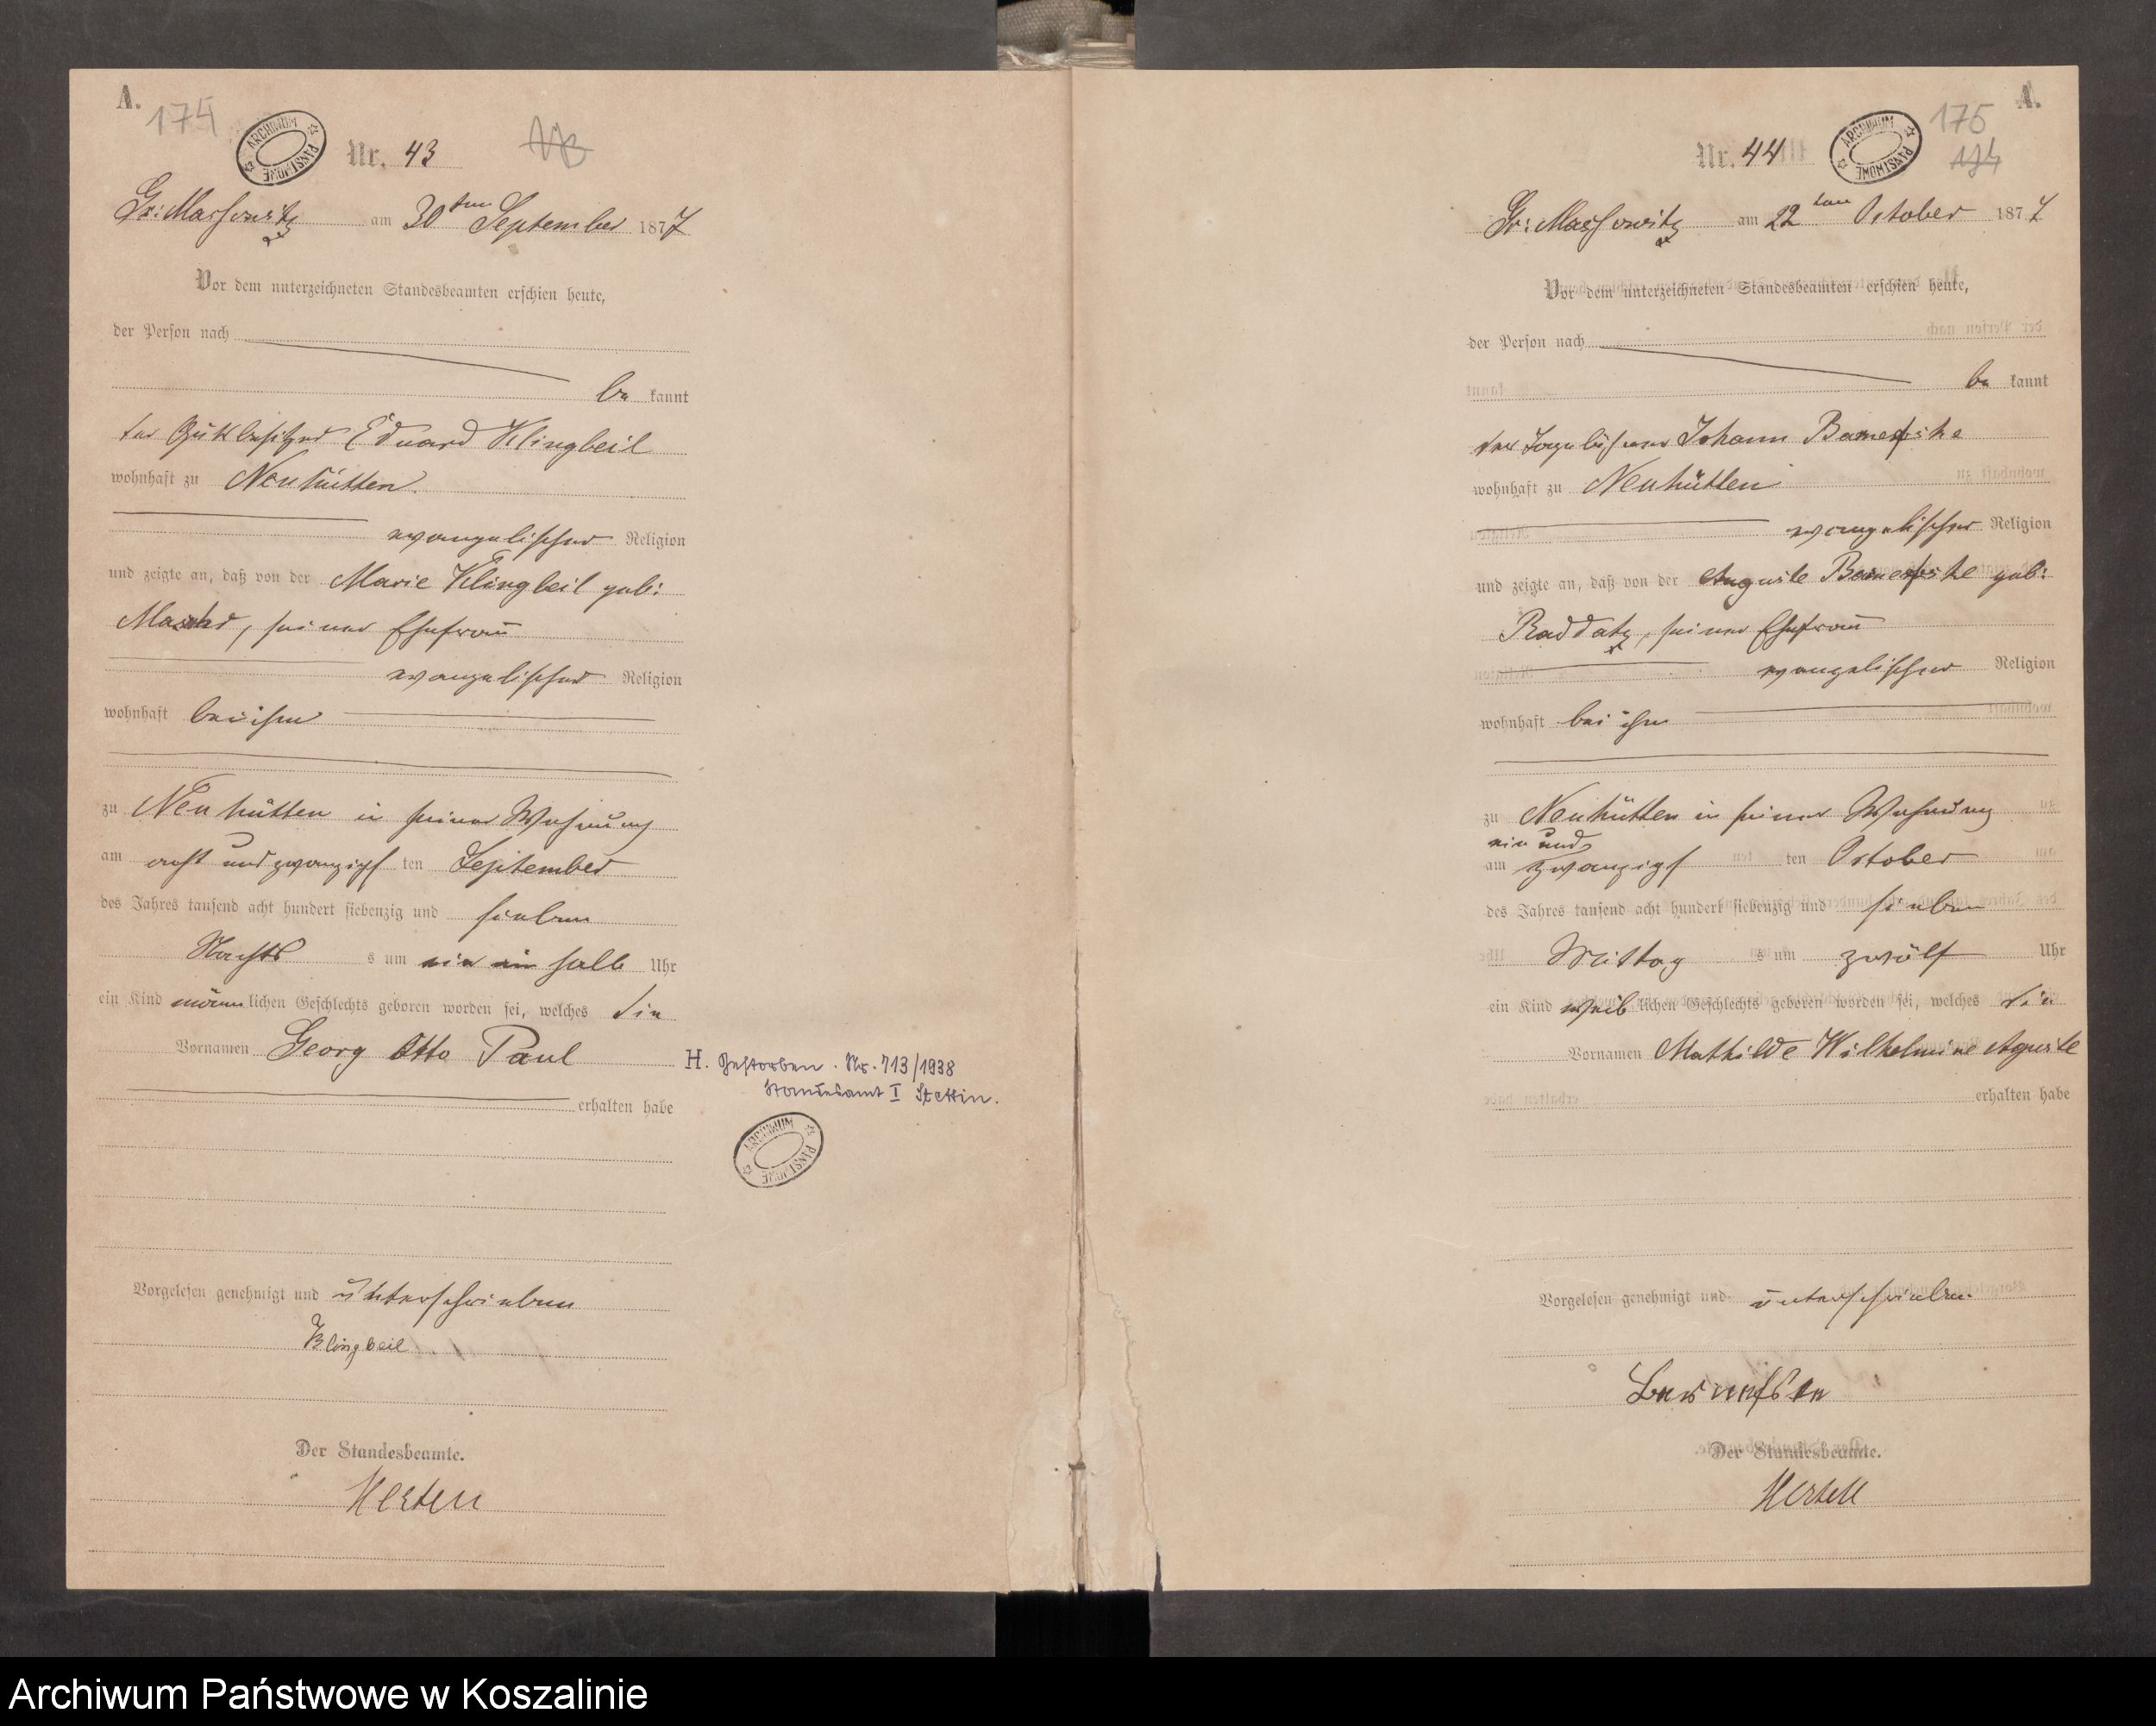 A.
174
ARCHIWUM PAŃSTWOWE
Nr. 43
Gr: Massowitz am 30ten September 1877
Vor dem unterzeichneten Standesbeamten erschien heute,
der Person nach
be kannt
der Gutsbesitzer Eduard Klingbeil
wohnhaft zu Neuhütten
evangelischer Religion
und zeigte an, daß von der Marie Klingbeil geb:
seiner Ehefrau
evangelischer Religion
wohnhaft bei ihm
zu Neuhütten in seiner Wohnung
am acht und zwanzigst ten September
des Jahres tausend acht hundert siebenzig und sieben
Nachts s um ein halb Uhr
ein Kind männlichen Geschlechts geboren worden sei, welches die
Vornamen Georg Otto Paul
erhalten habe
H. Gestorben. Nr. 713/1938
Standesamt I Stettin.
ARCHIWUM PAŃSTWOWE
Vorgelesen genehmigt und unterschrieben
Klingbeil
Der Standesbeamte.
A.
175
174
ARCHIWUM PAŃSTWOWE
Nr. 44
Gr: Massowitz am 22ten October 1877
Vor dem unterzeichneten Standesbeamten erschien heute,
der Person nach
be kannt
der Tagelöhner Johann
wohnhaft zu Neuhütten
evangelischer Religion
und zeigte an, daß von der Auguste geb:
Raddatz, seiner Ehefrau
evangelischer Religion
wohnhaft bei ihm
zu Neuhütten in seiner Wohnung
ein und
am zwanzigst ten October
des Jahres tausend acht hundert siebenzig und sieben
Mittag s um zwölf Uhr
ein Kind weiblichen Geschlechts geboren worden sei, welches die
Vornamen Mathilde Wilhelmine Aguste
erhalten habe
Vorgelesen genehmigt und unterschrieben
Der Standesbeamte.
Archiwum Państwowe w Koszalinie